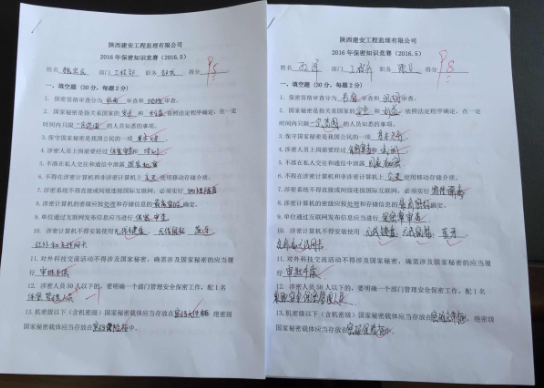 陕西建安工程监理有限公司
2016年保密知识竞赛（2016.5）
姓名 部门 职务 得分 95
一、填空题（30分，每题2分）
1、保密资格审查分为 审查和 审查。
2、国家秘密是指关系国家的安全和利益，依照法定程序确定，在一
定时间内只限一定范围的人员知悉的事项。
3.保守国家秘密是我国公民的一项基本义务
4.涉密人员上岗前要经过
5.不准在私人交往和通信中泄露国家秘密
6.不得在涉密计算机和非涉密计算机上交叉使用移动存储介质。
7.涉密系统不得直接或间接连接国际互联网，必须实行物理隔离
8.涉密计算机的密级应按处理和存储信息的最高密级确定。
9.单位通过互联网发布信息应当进行保密审查
10.涉密计算机不得安装使用无线键盘 无线鼠标 蓝牙
红外和无线网卡
11.对外科技交流活动不得涉及国家秘密，确需涉及国家秘密的应当履
行审批手续
12.涉密人员50人以下的，要明确一个部门管理安全保密工作，配1名
13.机密级以下（含机密级）国家秘密载体应当存放在密码文件柜 绝密级
国家秘密载体应当存放在密码保险柜中
陕西建安工程监理有限公司
2016年保密知识竞赛（2016.5）
姓名 部门 职务 得分 98
一、填空题（30分，每题2分）
1、保密资格审查分为 审查和 审查。
2、国家秘密是指关系国家的安全和利益，依照法定程序确定，在一定
时间内只限一定范围的人员知悉的事项。
3.保守国家秘密是我国公民的一项基本义务
4.涉密人员上岗前要经过
5.不准在私人交往和通信中泄露国家秘密
6.不得在涉密计算机和非涉密计算机上交叉使用移动存储介质。
7.涉密系统不得直接或间接连接国际互联网，必须实行物理隔离
8.涉密计算机的密级应按处理和存储信息的最高密级确定。
9.单位通过互联网发布信息应当进行保密审查
10.涉密计算机不得安装使用无线键盘 无线鼠标 蓝牙
11.对外科技交流活动不得涉及国家秘密，确需涉及国家秘密的应当履
行审批手续
12.涉密人员50人以下的，要明确一个部门管理安全保密工作，配1名
13.机密级以下（含机密级）国家秘密载体应当存放在密码文件柜 绝密级
国家秘密载体应当存放在密码保险柜中